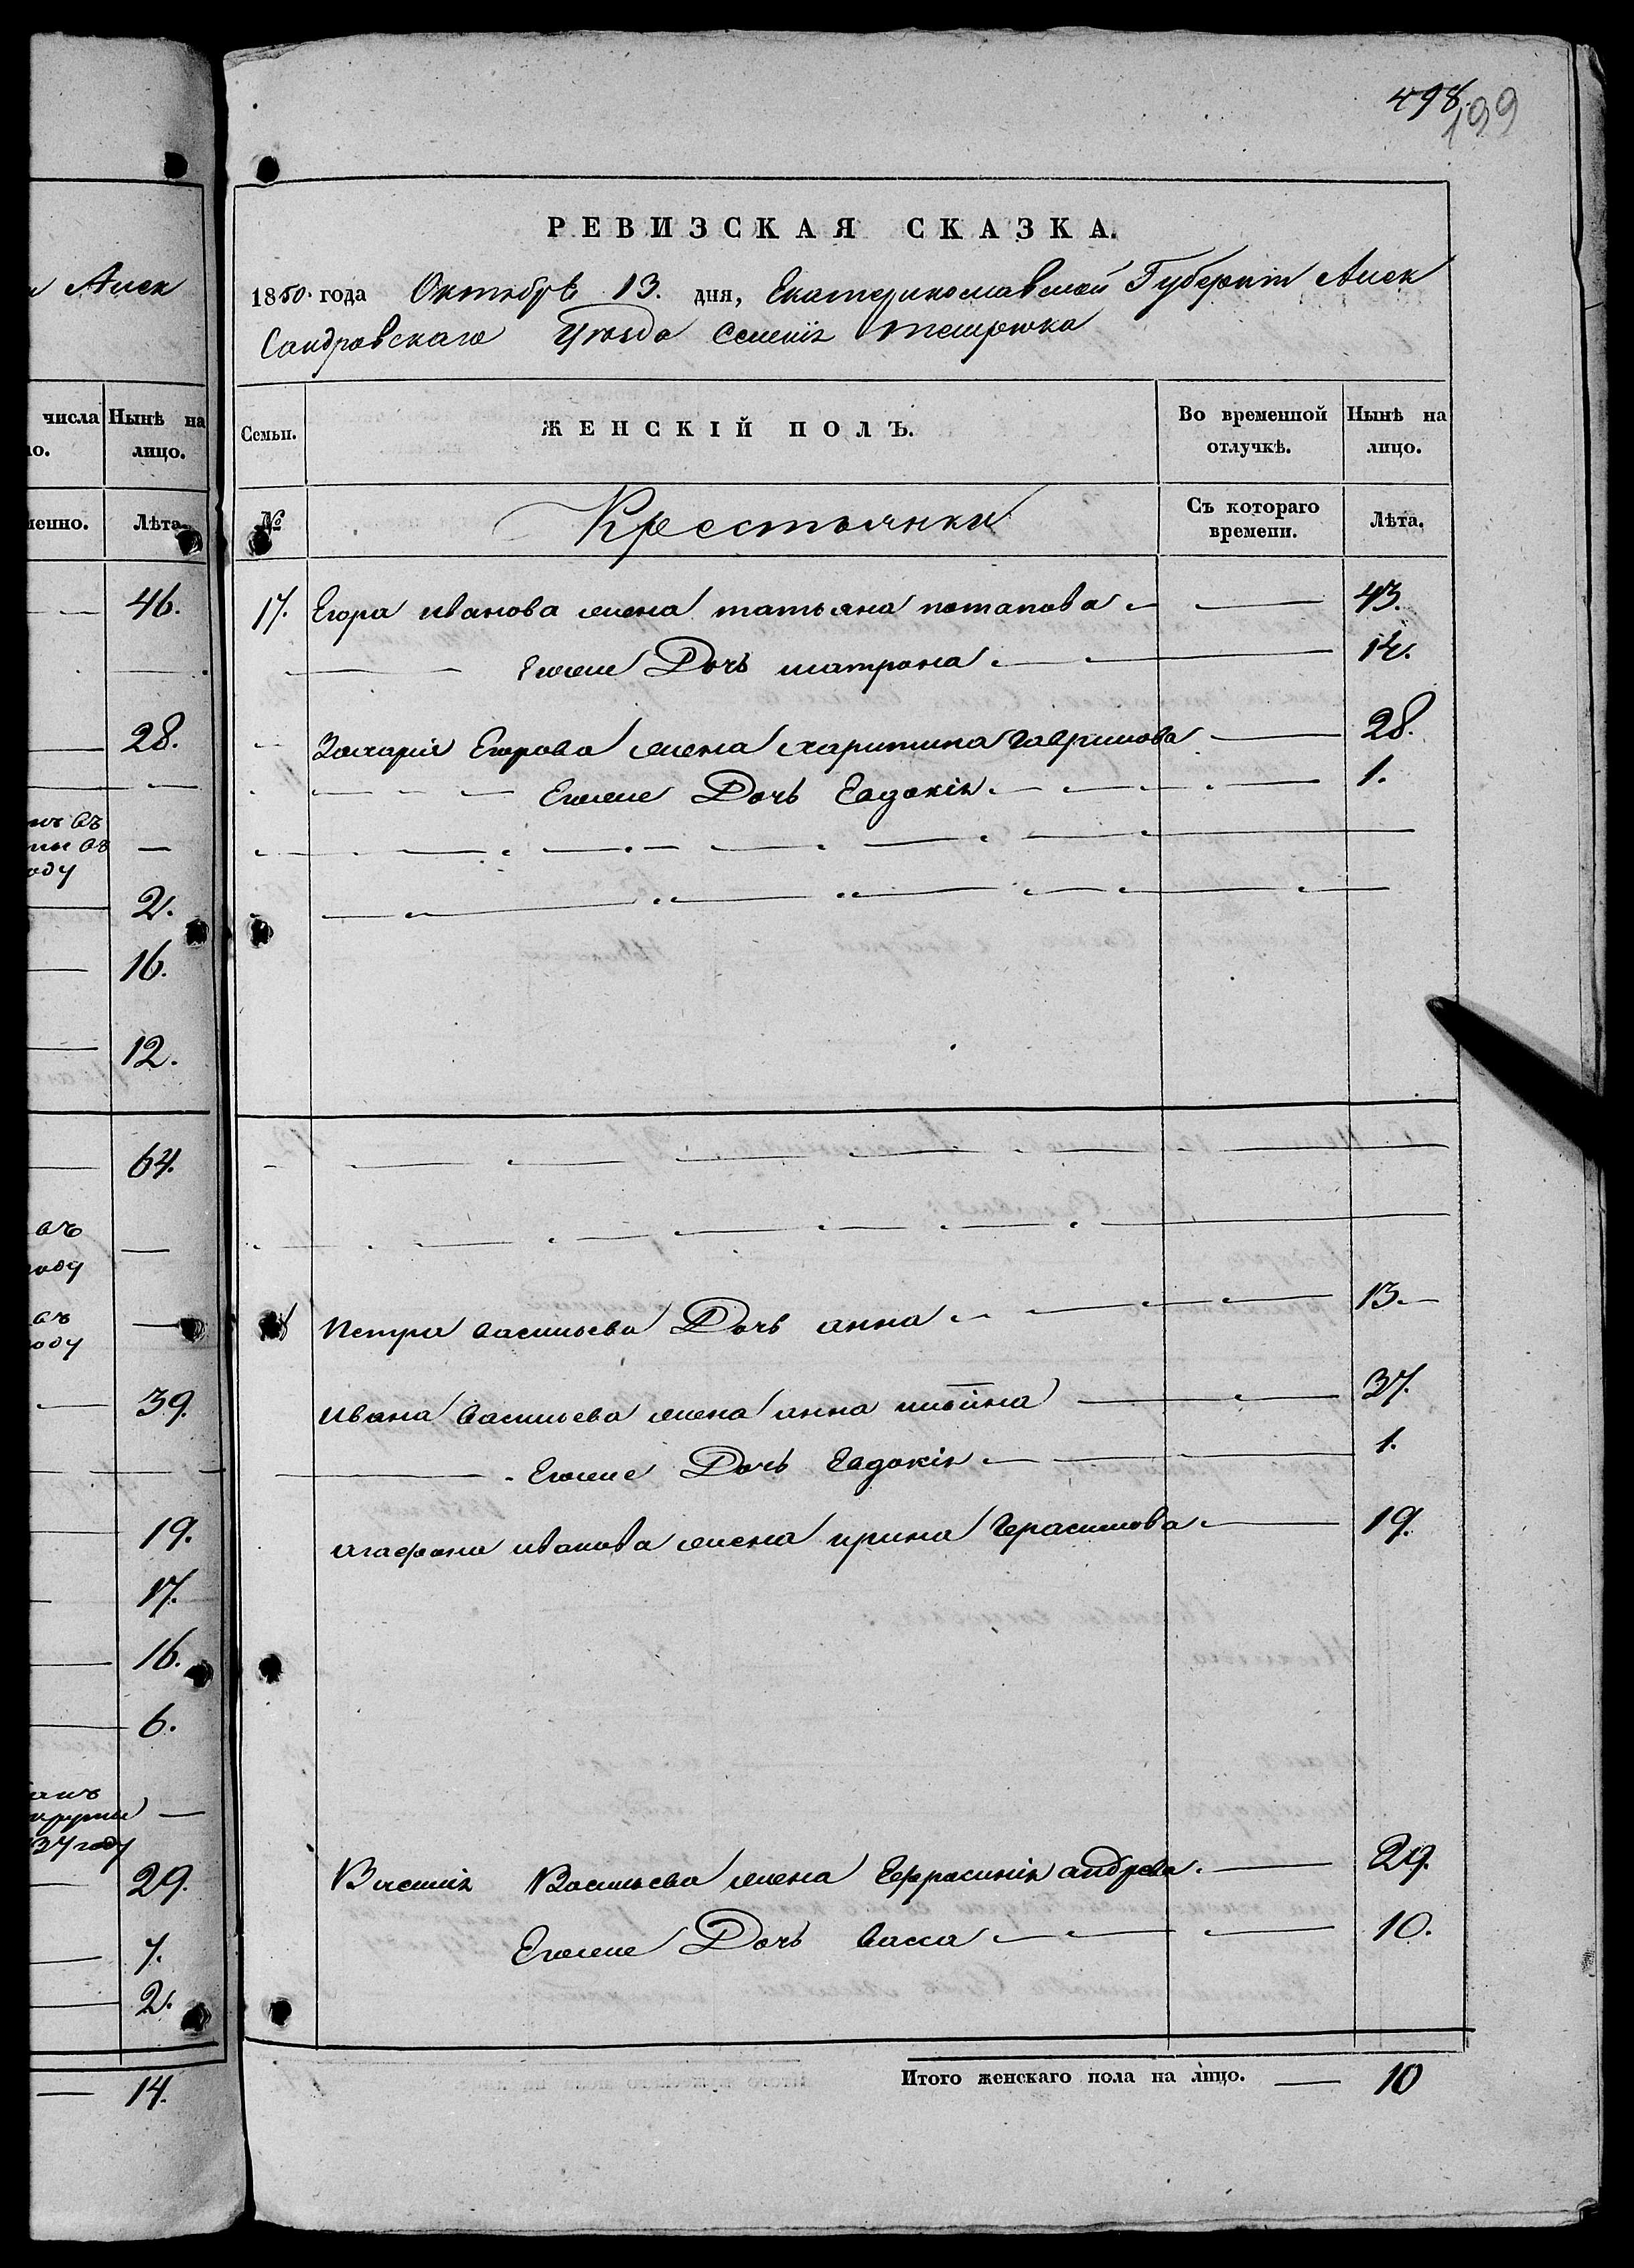 н Алек
числа Нынѣ на
ло. лицо.
менно. Лѣта.
46.
28.
въ
въ
оду
2.
16.
12.
64.
въ
году
въ
оду
39.
19.
17.
16.
6.
37 году
29.
7.
2.
14.
498.
199
РЕВИЗСКАЯ СКАЗКА.
1850. года Октября 13. дня, Екатеринославской Губерніи Алек
Сандровскаго Уѣзда Селенія Темрюка
Семьи. ЖЕНСКІЙ ПОЛЪ. Во временной отлучкѣ. Нынѣ на лицо.
№ Крестьянки Съ котораго времени. Лѣта.
17. Егора иванова жена татьяна потапова 43.
Егоже Дочь матрона 14.
Захарія Егорова жена харитина гаврилова 28.
Егоже Дочь Евдокія 1.
Петра васильева Дочь анна 13
ивана васильева жена анна ильина 37.
Егоже Дочь Евдокія 1.
агафона иванова жена ирина Герасимова 19.
Василія Васильева жена Ефросинія андреева 29.
Егоже Дочь васса 10.
Итого женскаго пола на лицо. 10